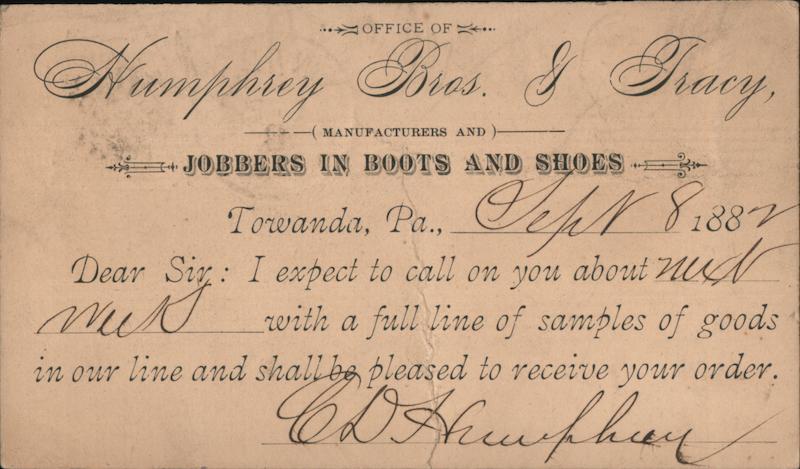 OFFICE OF
Humphrey Bros. & Tracy,
( MANUFACTURERS AND )
JOBBERS IN BOOTS AND SHOES
Towanda, Pa., Sept 8 1882
Dear Sir: I expect to call on you about next
week with a full line of samples of goods
in our line and shall be pleased to receive your order.
C D Humphrey